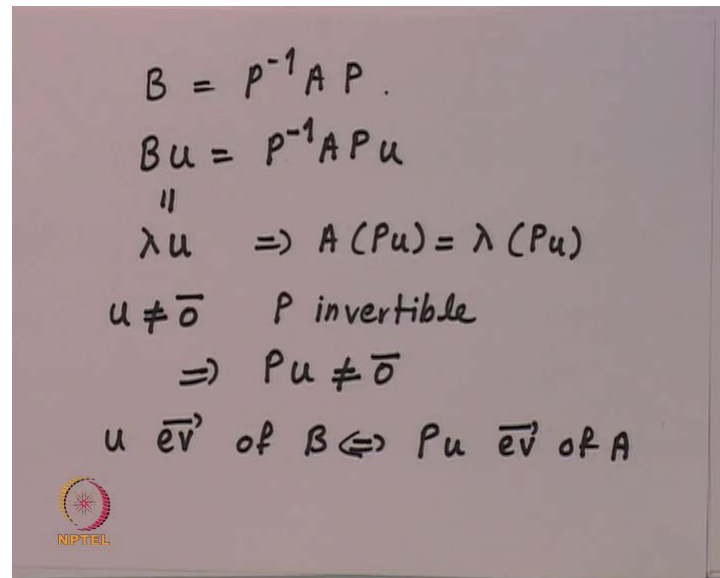 B = P⁻¹ A P .
Bu = P⁻¹ A P u
||
λu ⇒ A (Pu) = λ (Pu)
u ≠ 0̅ P invertible
⇒ Pu ≠ 0̅
u e̅v̅' of B ⇔ Pu e̅v̅' of A
NPTEL